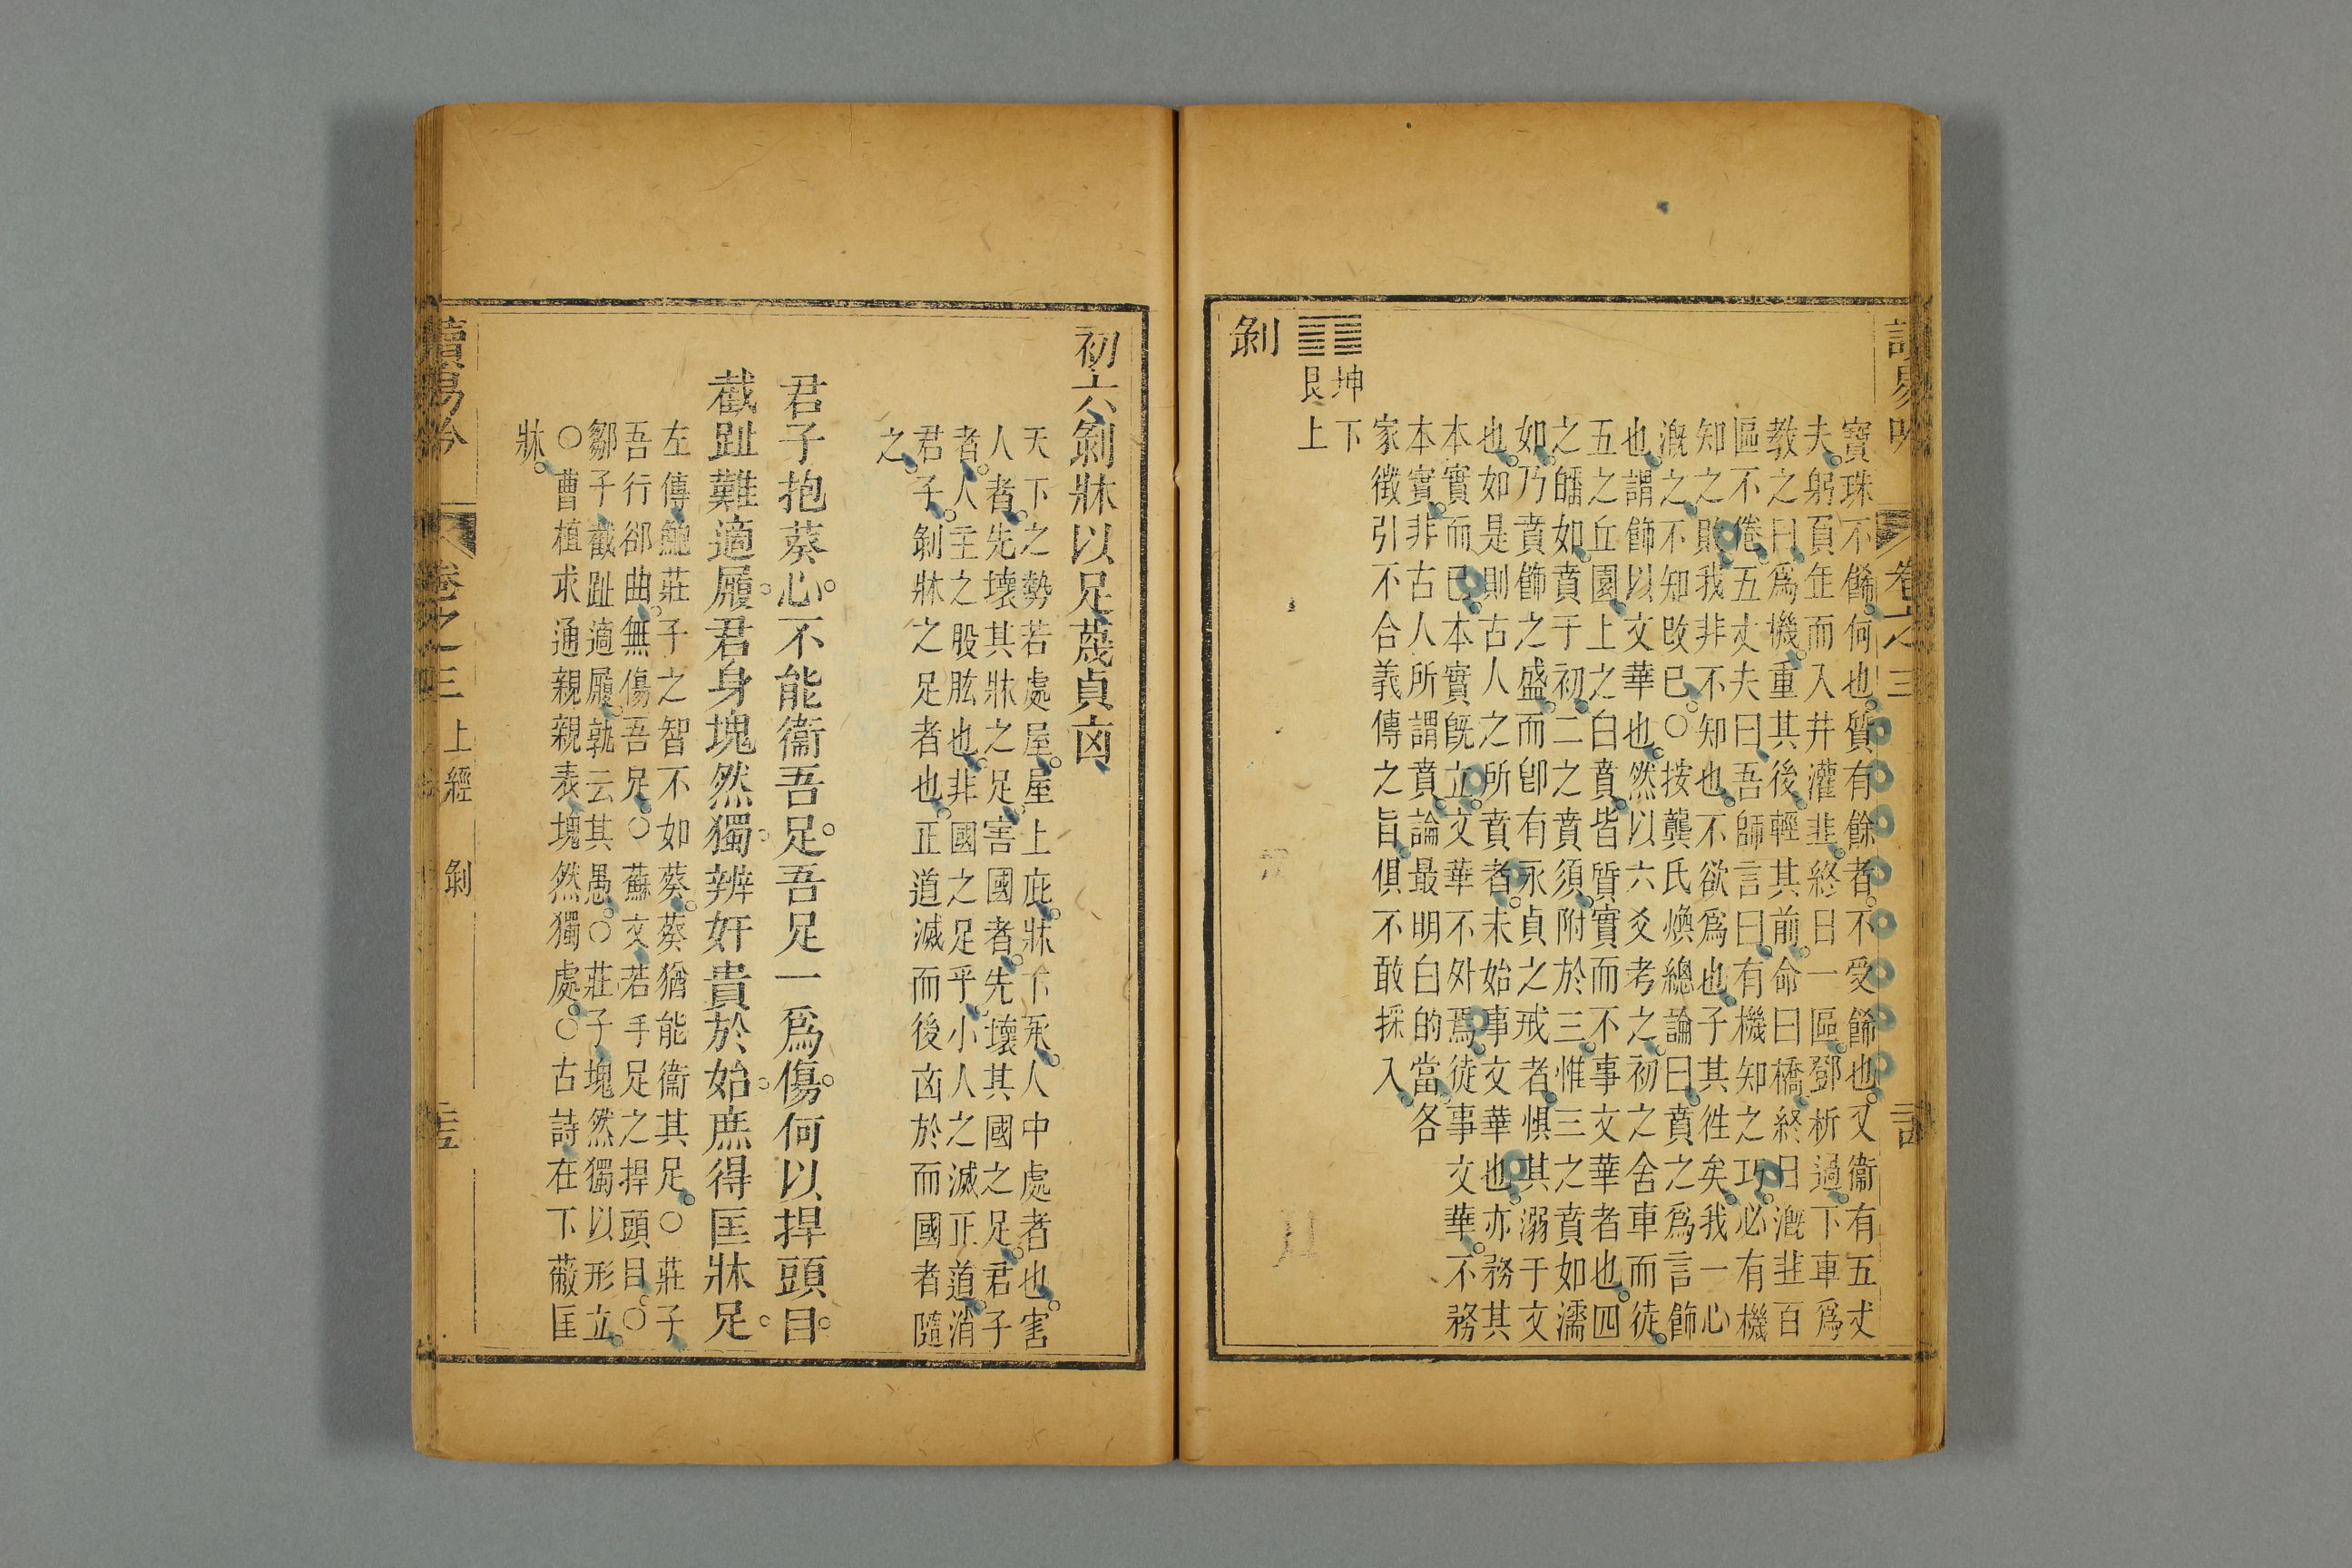 卷之三
寶珠不餙何也質有餘者不受餙也又衞有五丈
夫躬頁缶而入井灌韭終日一區鄧析過下車爲
教之曰爲機重其後輕其前命曰橋終日漑韭百
區不倦五丈夫曰吾師言曰有機知之巧必有機
知之敗我非不知也不欲爲也子其徃矣我一心
漑之不知攺已○按龔氏煥總論曰賁之爲言飾
也謂飾以文華也然以六爻考之初之舍車而徒
五之丘園上之白賁皆質實而不事文華者也四
之皤如賁于初二之賁須附於三惟三之賁如濡
如乃賁飾之盛而卽有永貞之戒者惧其溺于文
也如是則古人之所賁者未始事文華也亦務其
本實而已本實旣立文華不外焉徒事文華不務
本實非古人所謂賁論最明白的當各
家徵引不合義傳之旨俱不敢採入
坤下
艮上
剝
初六剝牀以足蔑貞凶
天下之勢若處屋屋上庇牀下承人中處者也害
人者先壞其牀之足害國者先壞其國之足君子
者人主之股肱也非國之足乎小人之滅正道消
君子剝牀之足者也正道滅而後凶於而國者隨
之
君子抱葵心不能衞吾足吾足一爲傷何以捍頭目
截趾難適履君身塊然獨辨奸貴於始庶得匡牀足
左傳鮑莊子之智不如葵葵猶能衞其足○莊子
吾行郤曲無傷吾足○蘇文若手足之捍頭目○
鄒子截趾適履孰云其愚○莊子塊然獨以形立
○曹植求通親親表塊然獨處○古詩在下蔽匡
牀
讀易吟 卷之三 上經 剝